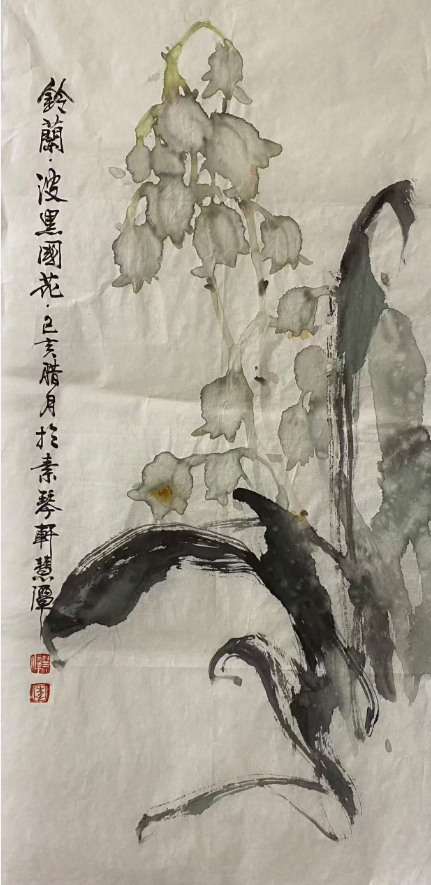 鈴蘭·波黑國花·己亥腊月於素琴軒慧潭